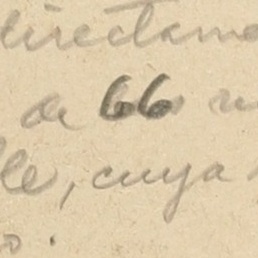 directame
de 66
le, cuya
o.